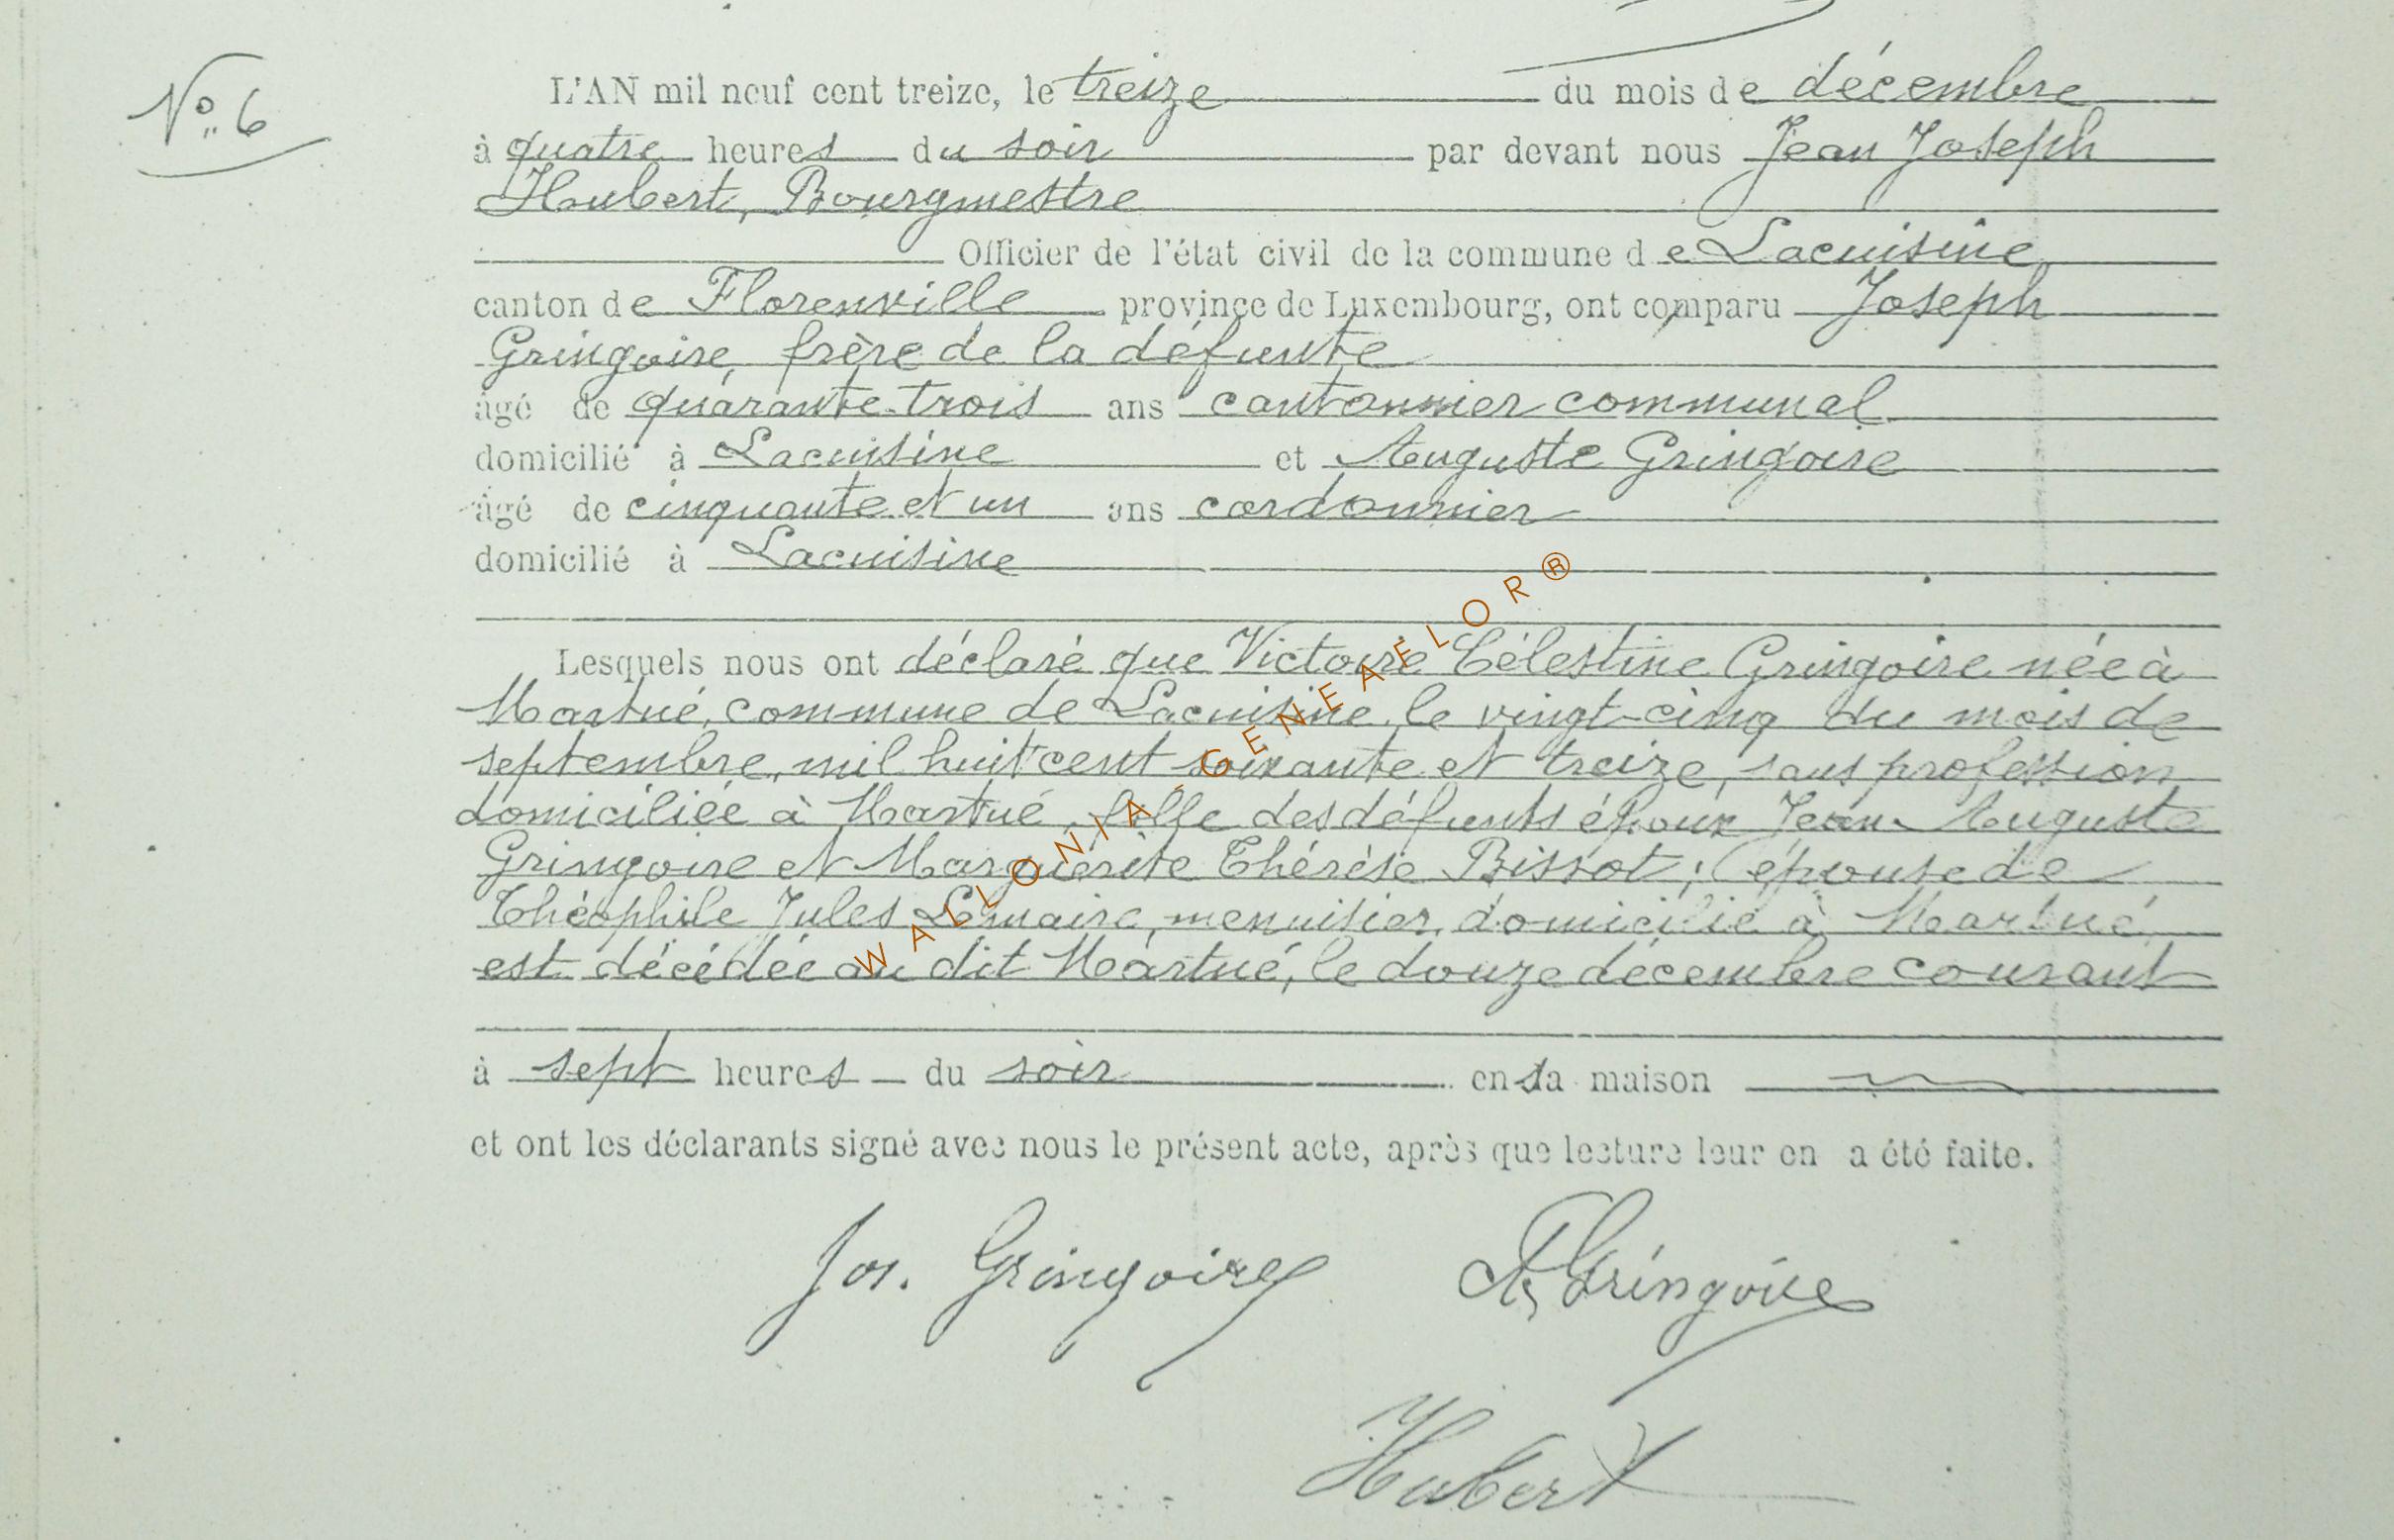 N° 6
L'AN mil neuf cent treize, le treize du mois de décembre
à quatre heures du soir par devant nous Jean Joseph
Hubert, Bourgmestre
Officier de l'état civil de la commune de Lacuisine
canton de Florenville province de Luxembourg, ont comparu Joseph
Gringoire, frère de la défunte
âgé de quarante-trois ans cantonnier communal
domicilié à Lacuisine et Auguste Gringoire
âgé de cinquante et un ans cordonnier
domicilié à Lacuisine
Lesquels nous ont déclaré que Victoire Célestine Gringoire née à
Martué, commune de Lacuisine, le vingt-cinq du mois de
septembre, mil huit cent soixante et treize, sans profession
domiciliée à Martué, fille des défunts époux Jean Auguste
Gringoire et Marguerite Thérèse Bissot; épouse de
Théophile Jules Lemaire, menuisier, domicilié à Martué,
est décédée au dit Martué, le douze décembre courant
à sept heures du soir en sa maison
et ont les déclarants signé avec nous le présent acte, après que lecture leur en a été faite.
Jos. Gringoire A Gringoire
Hubert
WALLONIA-GENEAELOR®